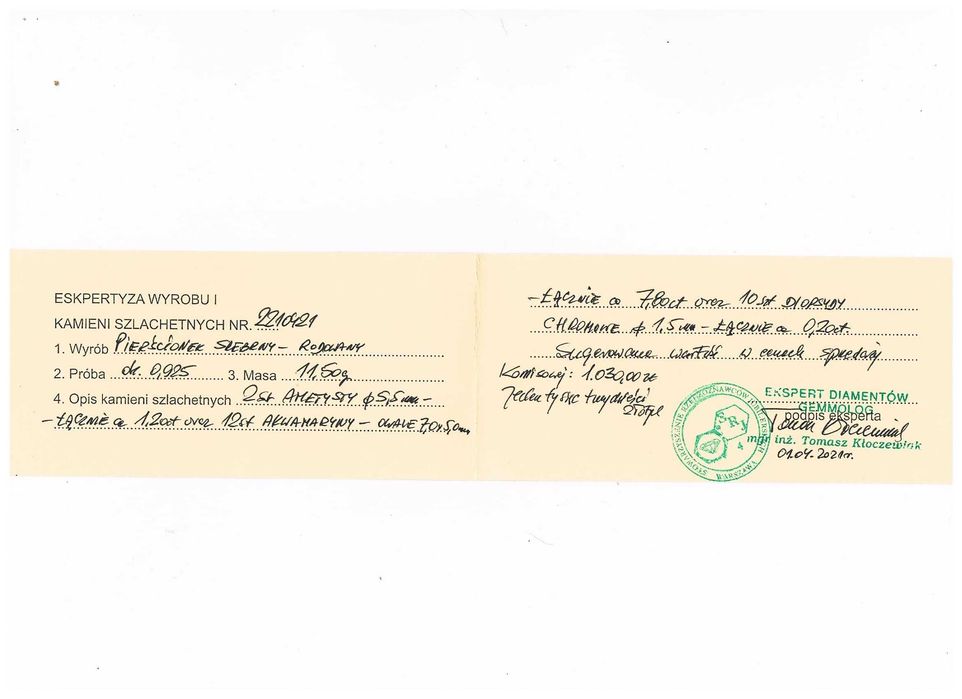 ESKPERTYZA WYROBU I
KAMIENI SZLACHETNYCH NR. 2210421
1. Wyrób PIERŚCIONEK SREBRNY – RODOWANY
2. Próba ok. 0,925 3. Masa 11,50g
4. Opis kamieni szlachetnych 2szt AMETYSTY ϕ5,5mm –
– ŁĄCZNIE ca 1,20ct oraz 12szt AKWAMARYNY – OWALE 7,0x5,0mm
– ŁĄCZNIE ca 7,80ct oraz 10szt DIOPSYDY
CHROMOWE ϕ 1,5mm – ŁĄCZNIE ca 0,20ct
Sugerowana wartość w cenach sprzedaży
komisowej: 1.030,00 zł
Jeden tysiąc trzydzieści
złotych
EKSPERT DIAMENTÓW
GEMMOLOG
podpis eksperta
mgr inż. Tomasz Kłoczewiak
01.04.2021r.
STOWARZYSZENIE RZECZOZNAWCÓW JUBILERSKICH
SRJ
4
WARSZAWA